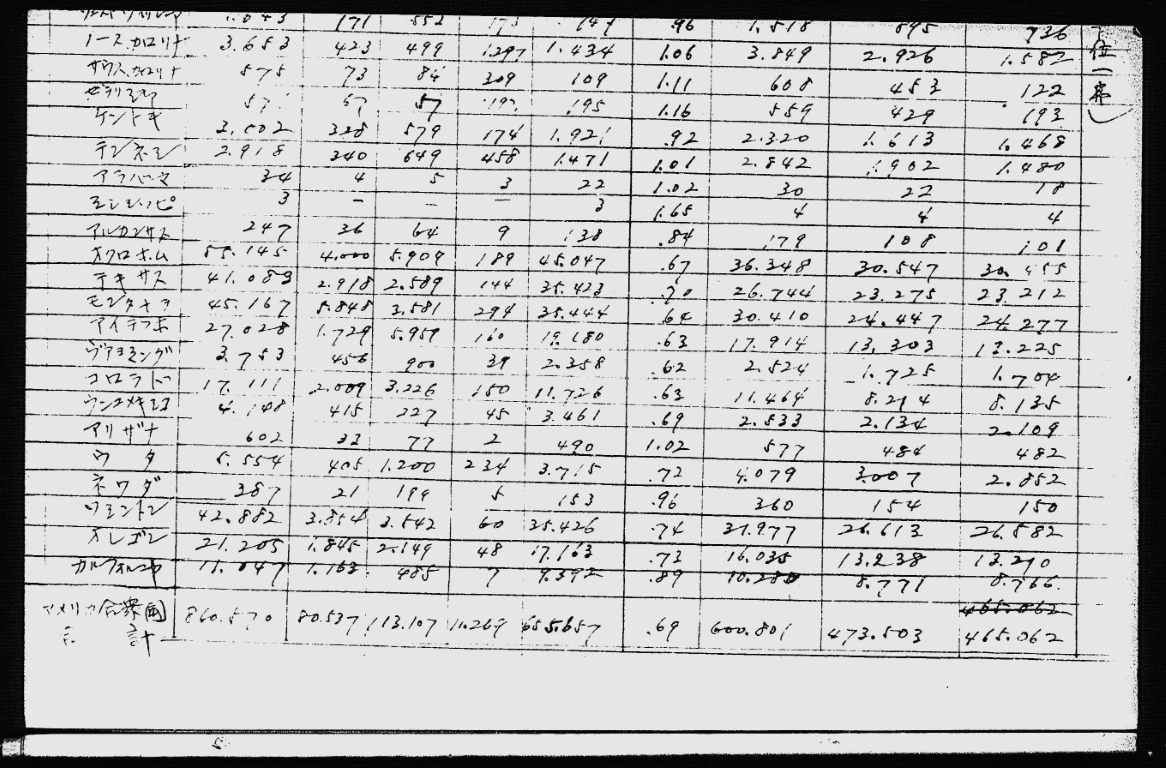 1.043 171 552 149 .96 1.518 895 736
ノースカロリナ 3.653 423 499 1.297 1.434 1.06 3.849 2.926 1.582
サウスカロリナ 575 73 84 309 109 1.11 608 453 122
67 57 195 1.16 559 429 193
ケントキ 3.002 328 579 174 1.921 .92 2.320 1.613 1.468
テンネシ 2.918 340 649 458 1.471 1.01 2.842 1.902 1.480
アラバーマ 34 4 5 3 22 1.02 30 22 18
ミシシッピ 3 — — — 3 1.65 4 4 4
アルカンサス 247 36 64 9 138 .84 179 108 101
オクロホーム 55.145 4.000 5.909 189 45.047 .67 36.348 30.547 30.455
テキサス 41.083 2.918 2.589 144 35.423 .70 26.744 23.275 23.212
モンタナ 45.167 5.848 3.581 294 35.444 .64 30.410 24.447 24.277
アイデアホ 27.028 1.729 5.959 160 19.180 .63 17.914 13.303 13.225
ヴアヨミング 3.753 456 900 39 2.358 .62 2.524 1.725 1.704
コロラド 17.111 2.009 3.226 150 11.726 .63 11.464 8.214 8.135
4.148 415 227 45 3.461 .69 2.533 2.134 2.109
アリザナ 602 33 77 2 490 1.02 577 484 482
ウタ 5.554 405 1.200 234 3.715 .72 4.079 3.007 2.852
ネワダ 387 21 199 5 153 .96 360 154 150
42.882 3.854 3.542 60 35.426 .74 31.977 26.613 26.582
オレゴン 21.205 1.845 2.149 48 17.163 .73 16.035 13.238 13.210
カルフォルニヤ 11.047 1.163 485 7 9.392 .89 10.280 8.771 8.766
465.062
アメリカ合衆國 860.570 80.537 113.107 11.269 655.657 .69 600.801 473.503 465.062
合計